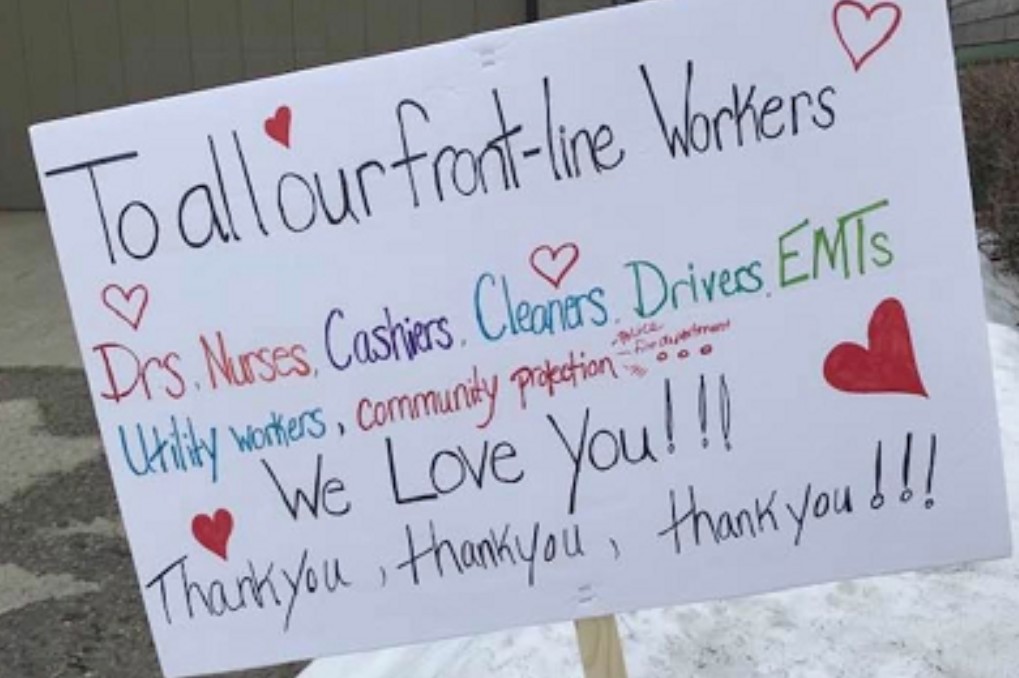 To all our front-line Workers
Drs, Nurses, Cashiers, Cleaners, Drivers, EMTs
Utility workers, community protection
- Police
- Fire department
We Love You!!!
Thankyou, thankyou, thankyou!!!